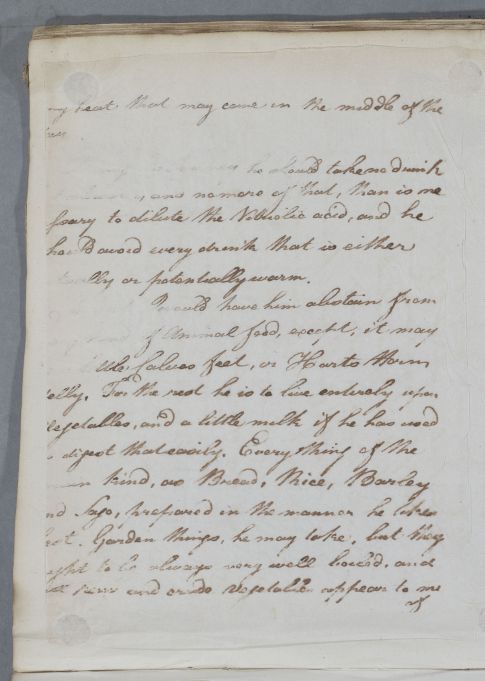 heat that may come in the middle of the
he should take no drink
and no more of that, than is ne
ssary to dilute the Vitriolic acid, and he
should avoid every drink that is either
or potentially warm.
I would have him abstain from
of Animal food, except, it may
Calves feet, or Harts Horn
Jelly. For the rest he is to live entirely upon
Vegetables, and a little milk if he has used
digest that easily. Every thing of the
kind, as Bread, Rice, Barley
nd Sago, prepared in the manner he likes
Garden things, he may take, but they
ought to be always very well boiled, and
and crude vegetables appear to me
of